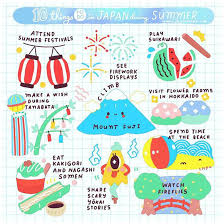 10 things in JAPAN during SUMMER
ATTEND
SUMMER
FESTIVALS
SEE
FIREWORK
DISPLAYS
PLAY
SUIKAWARI
MAKE A WISH
DURING
TANABATA!
CLIMB
MOUNT FUJI
VISIT FLOWER FARMS
IN HOKKAIDO
SPEND TIME
AT THE BEACH
EAT
KAKIGORI
AND NAGASHI
SOMEN
SHARE
SCARY
YOKAI
STORIES
WATCH
FIREFLIES